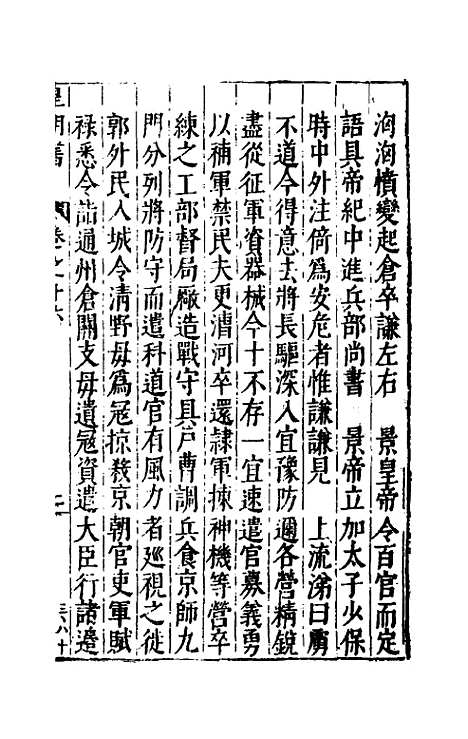 洶洶憤變起倉卒謙左右　景皇帝令百官而定
語具帝紀中進兵部尚書　景帝立加太子少保
時中外注倚爲安危者惟謙謙見　上流涕曰虜
不道今得意去將長驅深入宜豫防邇各營精銳
盡從征軍資器械今十不存一宜速遣官募義勇
以補軍禁民夫更漕河卒還隷軍揀神機等營卒
練之工部督局廠造戰守具戸曹調兵食京師九
門分列將防守而遣科道官有風力者廵視之徙
郭外民入城令清野毋爲冦掠發京朝官吏軍賦
祿悉令詣通州倉關支毋遺冦資遣大臣行諸邉
皇明舊 卷之十六